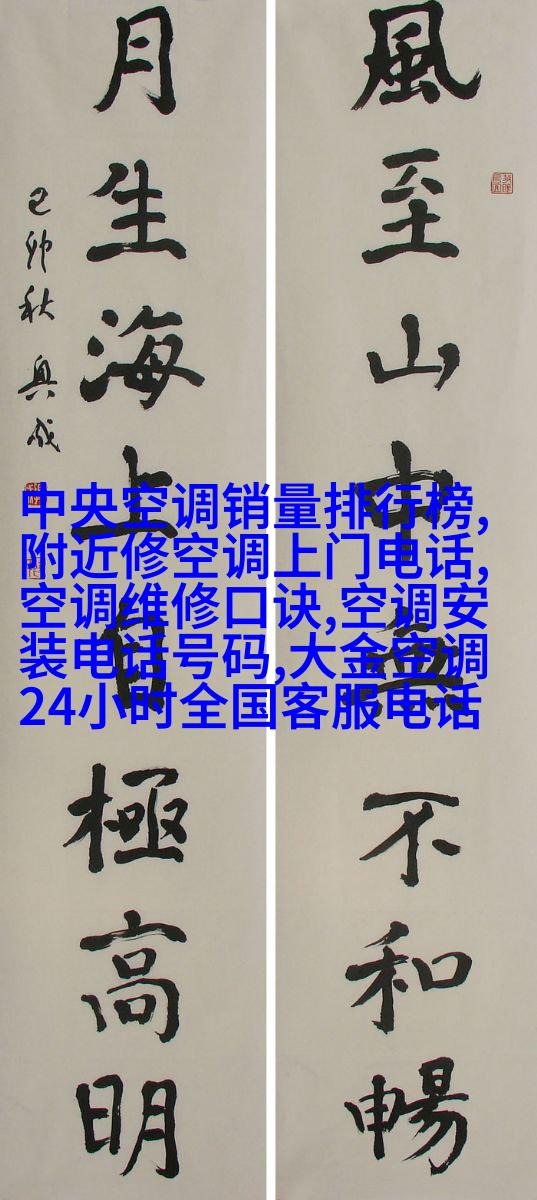 風至山中無不和暢
月生海上自極高明
己卯秋
中央空调销量排行榜,
附近修空调上门电话,
空调维修口诀,空调安
装电话号码,大金空调
24小时全国客服电话